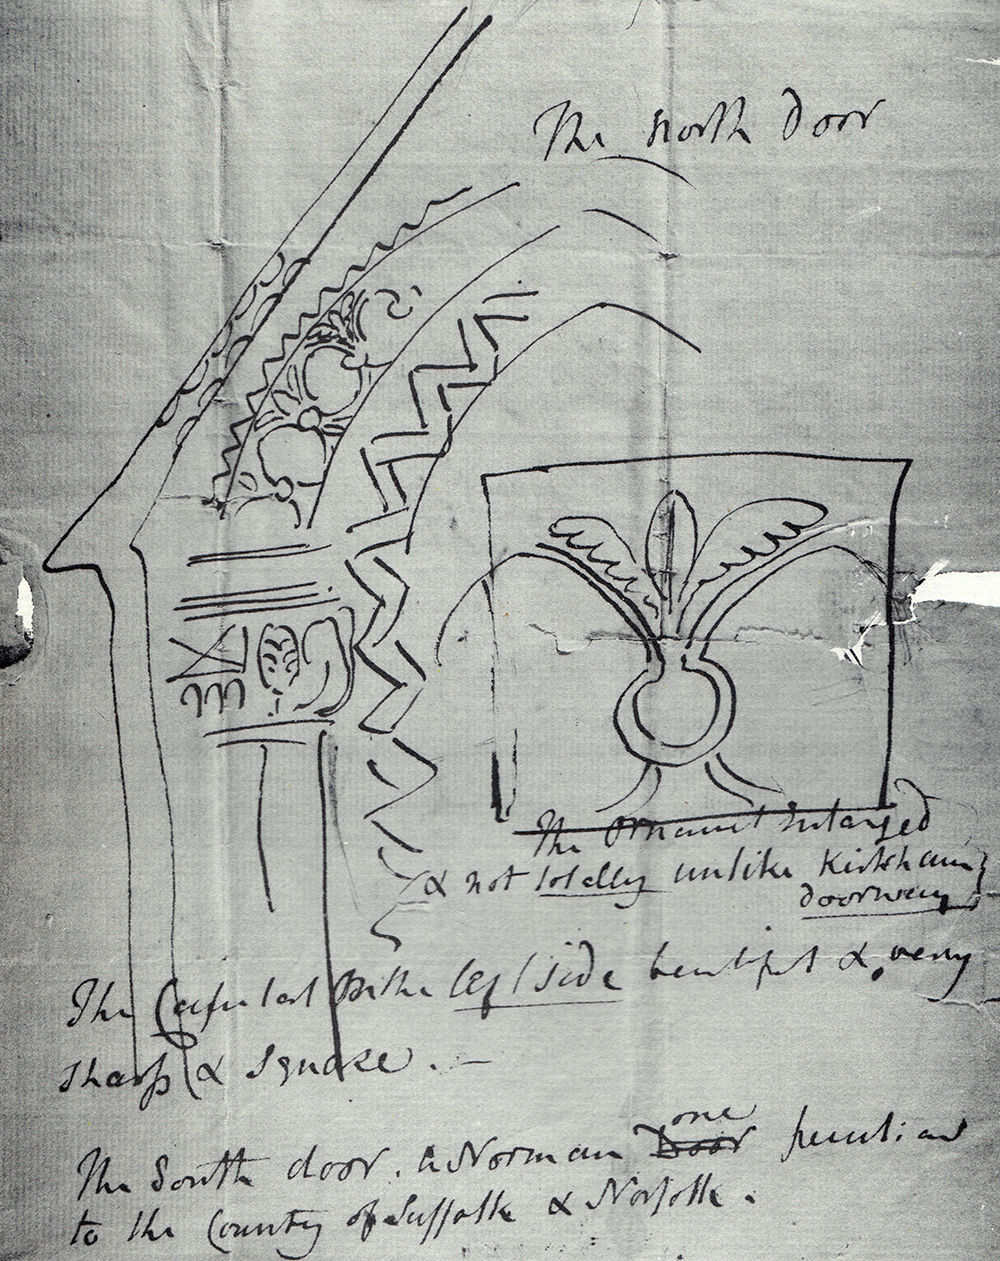 The north Door
The Ornament Enlarged
& not totally unlike Kirkham
doorway
The Capital on the left side beautiful & very
sharp & square. —
one
The South door. a Norman Door peculiar
to the County of Suffolk & Norfolk.